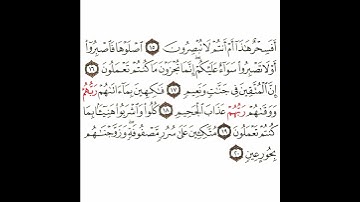 أَفَسِحْرٌ هَٰذَا أَمْ أَنتُمْ لَا تُبْصِرُونَ ١٥ اصْلَوْهَا فَاصْبِرُوا
أَوْ لَا تَصْبِرُوا سَوَاءٌ عَلَيْكُمْ إِنَّمَا تُجْزَوْنَ مَا كُنتُمْ تَعْمَلُونَ ١٦
إِنَّ الْمُتَّقِينَ فِي جَنَّاتٍ وَنَعِيمٍ ١٧ فَاكِهِينَ بِمَا آتَاهُمْ رَبُّهُمْ
وَوَقَاهُمْ رَبُّهُمْ عَذَابَ الْجَحِيمِ ١٨ كُلُوا وَاشْرَبُوا هَنِيئًا بِمَا
كُنتُمْ تَعْمَلُونَ ١٩ مُتَّكِئِينَ عَلَىٰ سُرُرٍ مَّصْفُوفَةٍ وَزَوَّجْنَاهُم
بِحُورٍ عِينٍ ٢٠